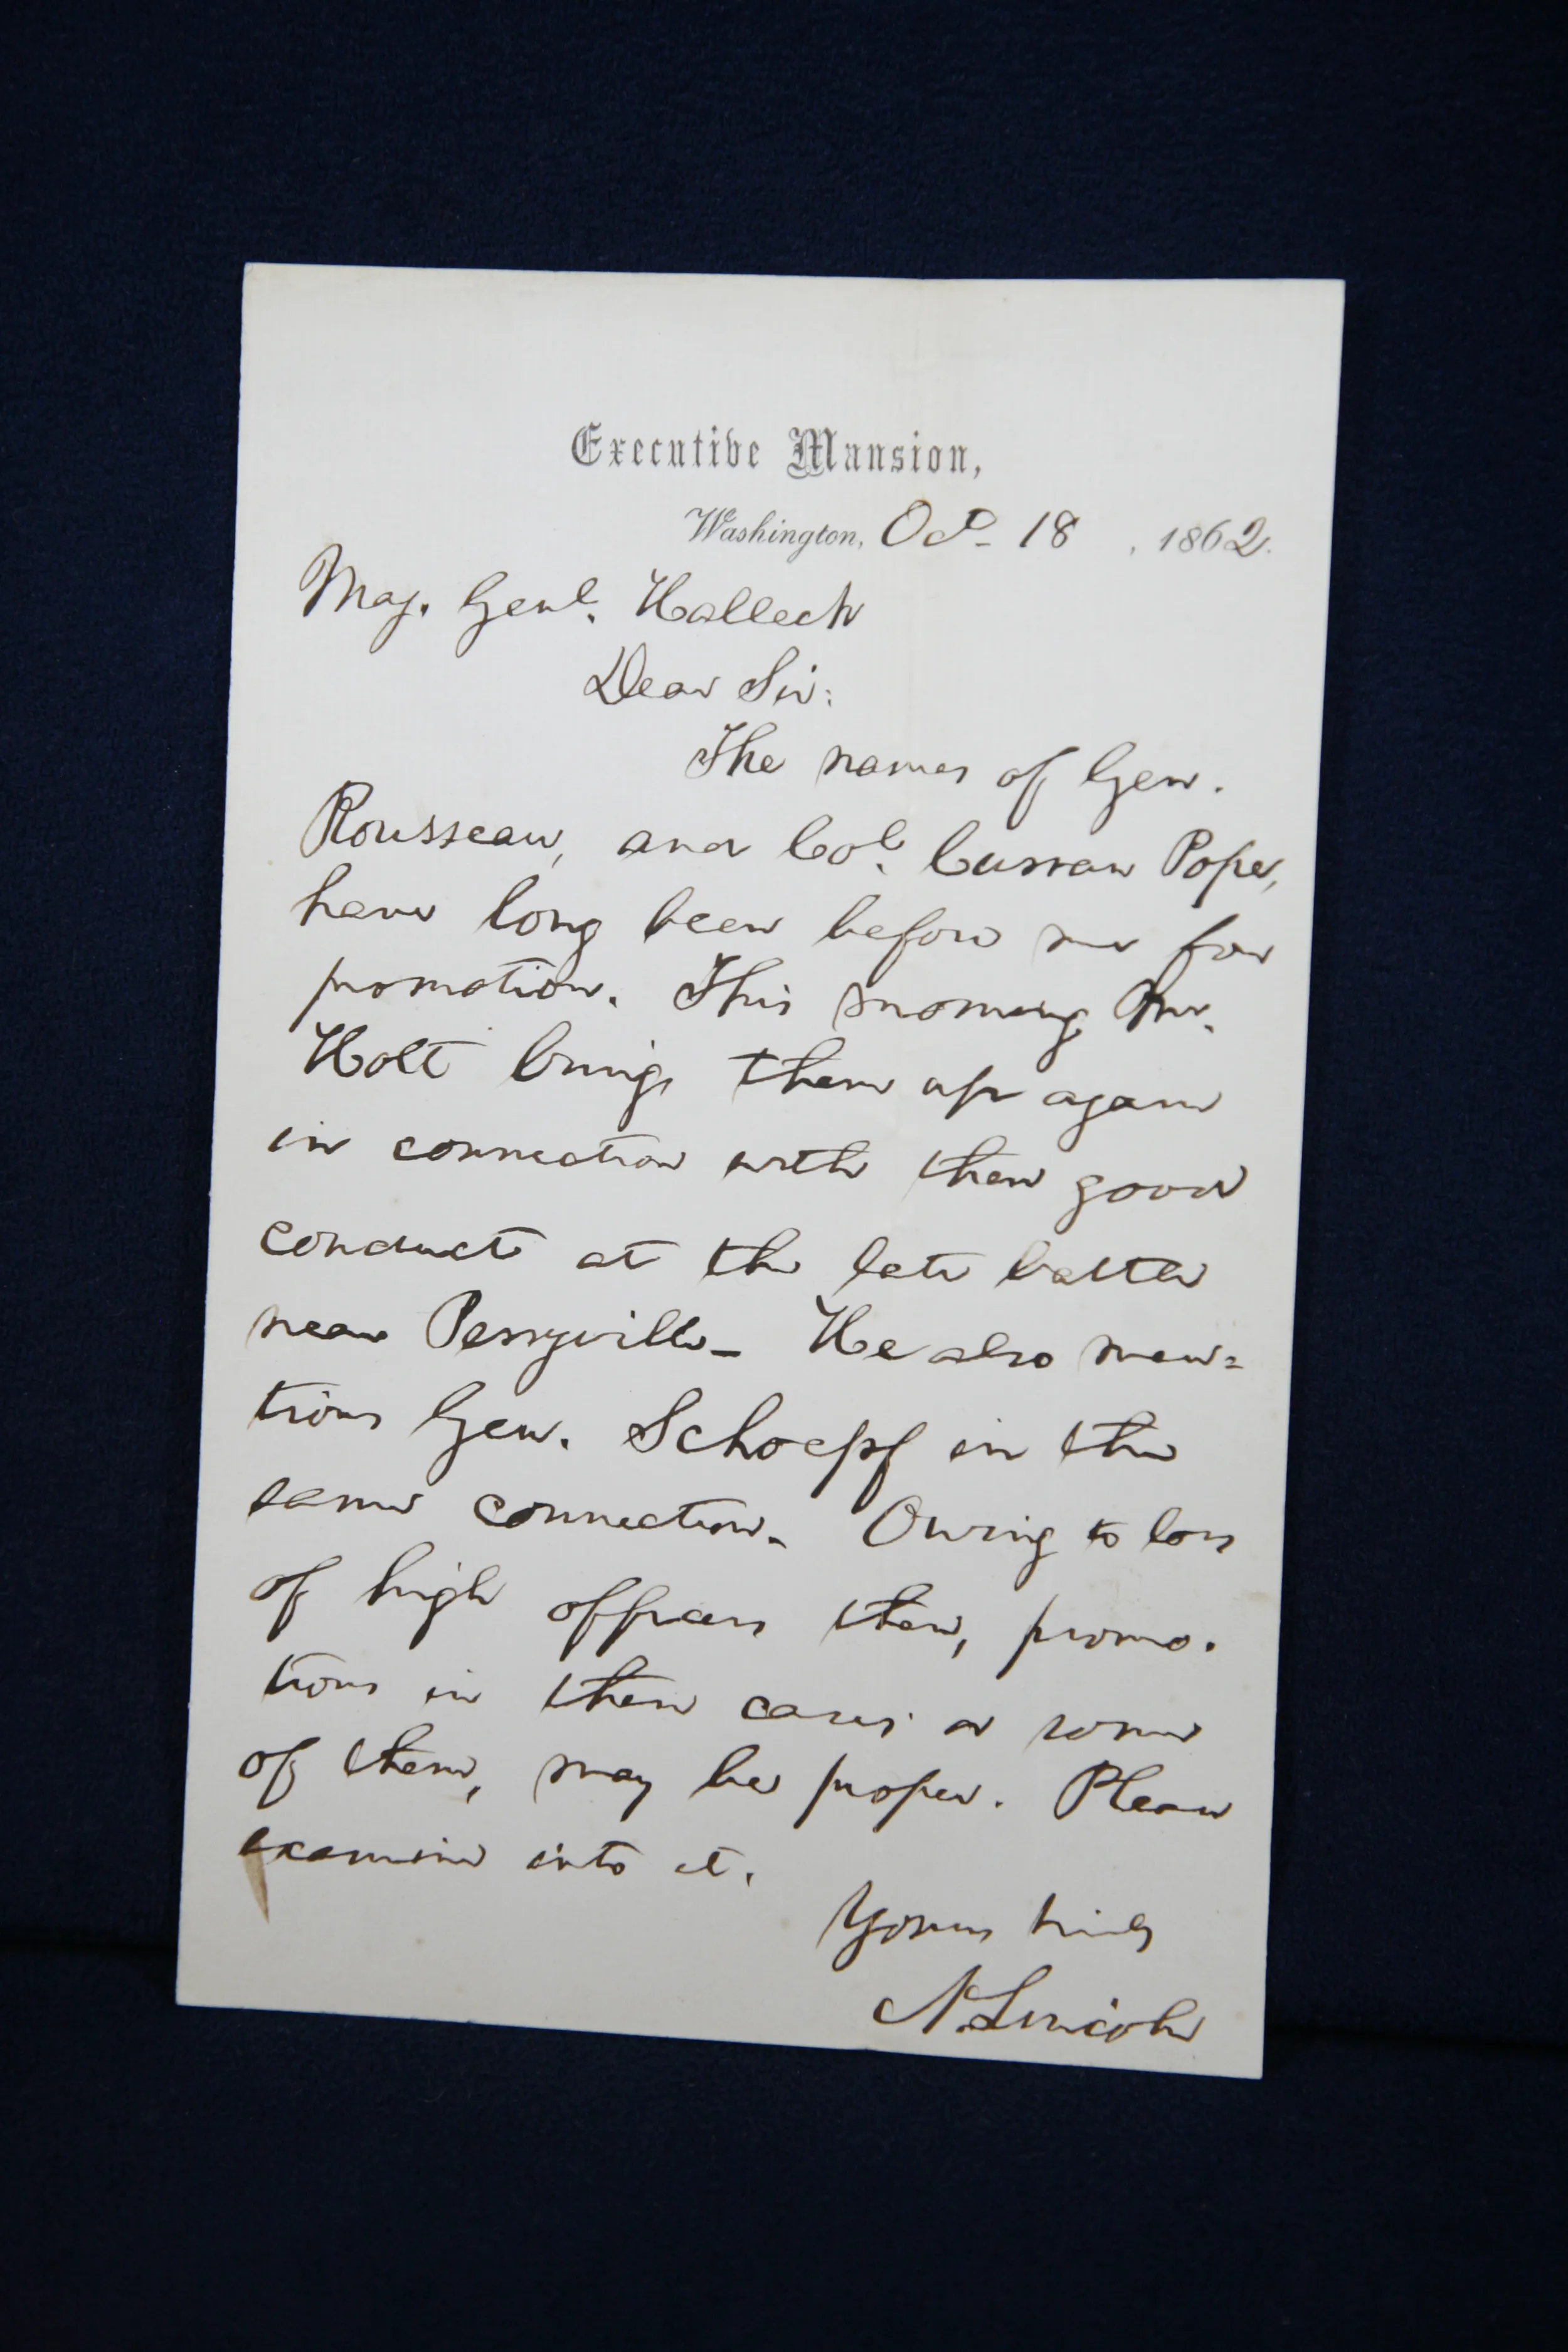 Executive Mansion,
Washington, Oct. 18, 1862.
Maj. Genl. Halleck
Dear Sir:
The names of Gen.
Rousseau, and Col. Curran Pope,
have long been before me for
promotion. This morning Mr.
Holt brings them up again
in connection with their good
conduct at the late battle
near Perryville- He also men=
tions Gen. Schoepf in the
same connection. Owing to loss
of high officers there, promo-
tions in these cases or some
of them, may be proper. Please
examine into it.
Yours truly
A. Lincoln